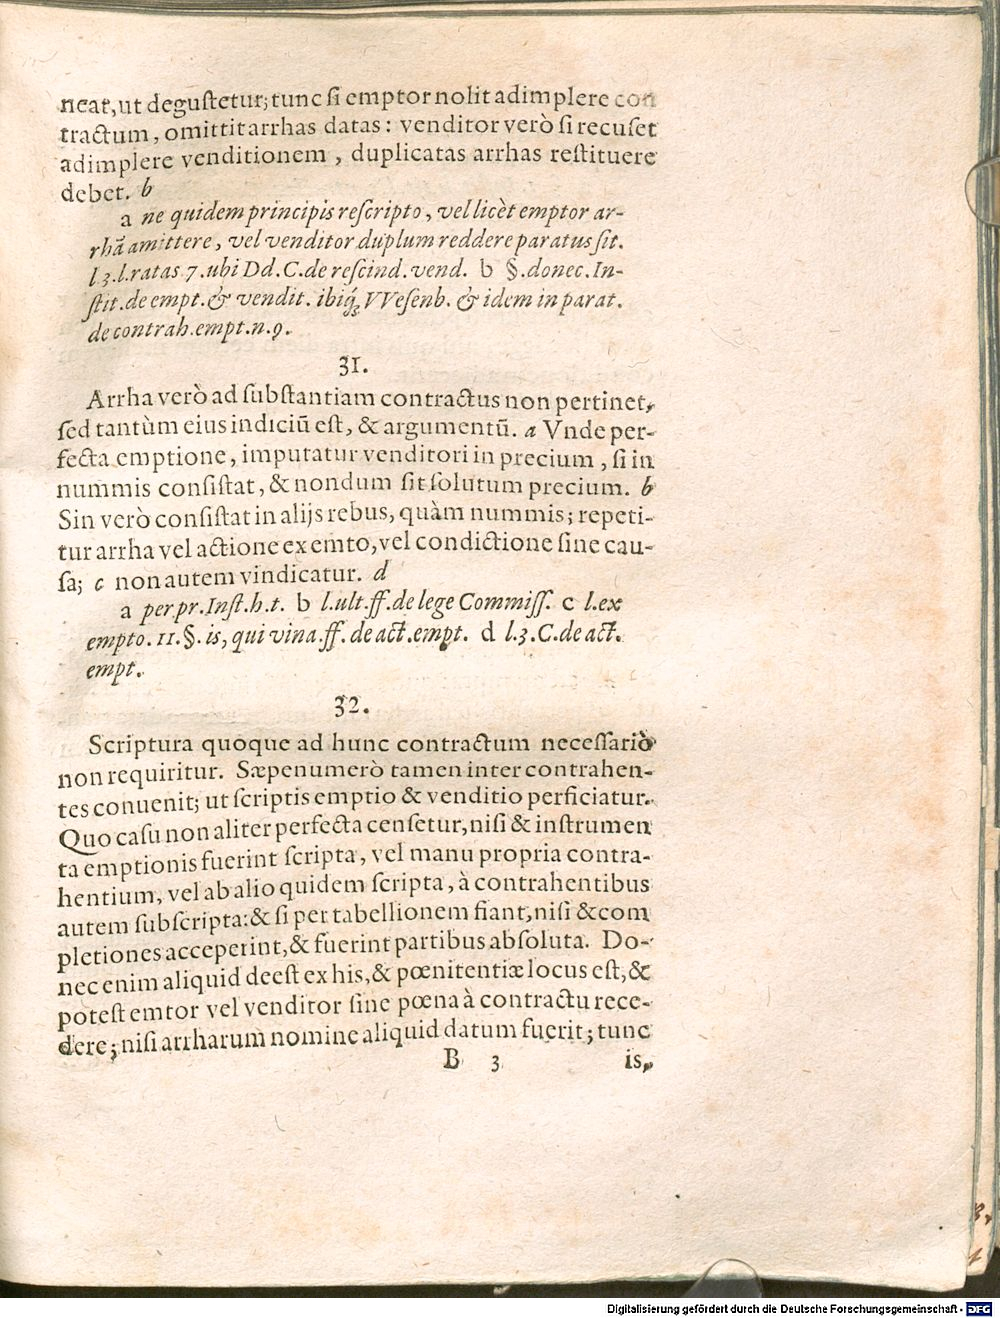 neat, ut degustetur; tunc si emptor nolit adimplere con
tractum, omittit arrhas datas: venditor verò si recuset
adimplere venditionem, duplicatas arrhas restituere
debet. b
a ne quidem principis rescripto, vel licèt emptor ar-
rhā amittere, vel venditor duplum reddere paratus sit.
l 3. l. ratas 7. ubi Dd. C. de rescind. vend. b §. donec. In-
stit. de empt. & vendit. ibiq; VVesenb. & idem in parat.
de contrah. empt. n. 9.
31.
Arrha verò ad substantiam contractus non pertinet,
sed tantùm eius indiciū est, & argumentū. a Vnde per-
fecta emptione, imputatur venditori in precium, si in
nummis consistat, & nondum sit solutum precium. b
Sin verò consistat in alijs rebus, quàm nummis; repeti-
tur arrha vel actione ex emto, vel condictione sine cau-
sa; c non autem vindicatur. d
a per pr. Inst. h. t. b l. ult. ff. de lege Commiss. c l. ex
empto. 11. §. is, qui vina. ff. de act. empt. d l. 3. C. de act.
empt.
32.
Scriptura quoque ad hunc contractum necessariò
non requiritur. Sæpenumerò tamen inter contrahen-
tes conuenit; ut scriptis emptio & venditio perficiatur.
Quo casu non aliter perfecta censetur, nisi & instrumen
ta emptionis fuerint scripta, vel manu propria contra-
hentium, vel ab alio quidem scripta, à contrahentibus
autem subscripta: & si per tabellionem fiant, nisi & com
pletiones acceperint, & fuerint partibus absoluta. Do-
nec enim aliquid deest ex his, & pœnitentiæ locus est, &
potest emtor vel venditor sine pœna à contractu rece-
dere; nisi arrharum nomine aliquid datum fuerit; tunc
B 3 is,
Digitalisierung gefördert durch die Deutsche Forschungsgemeinschaft - DFG